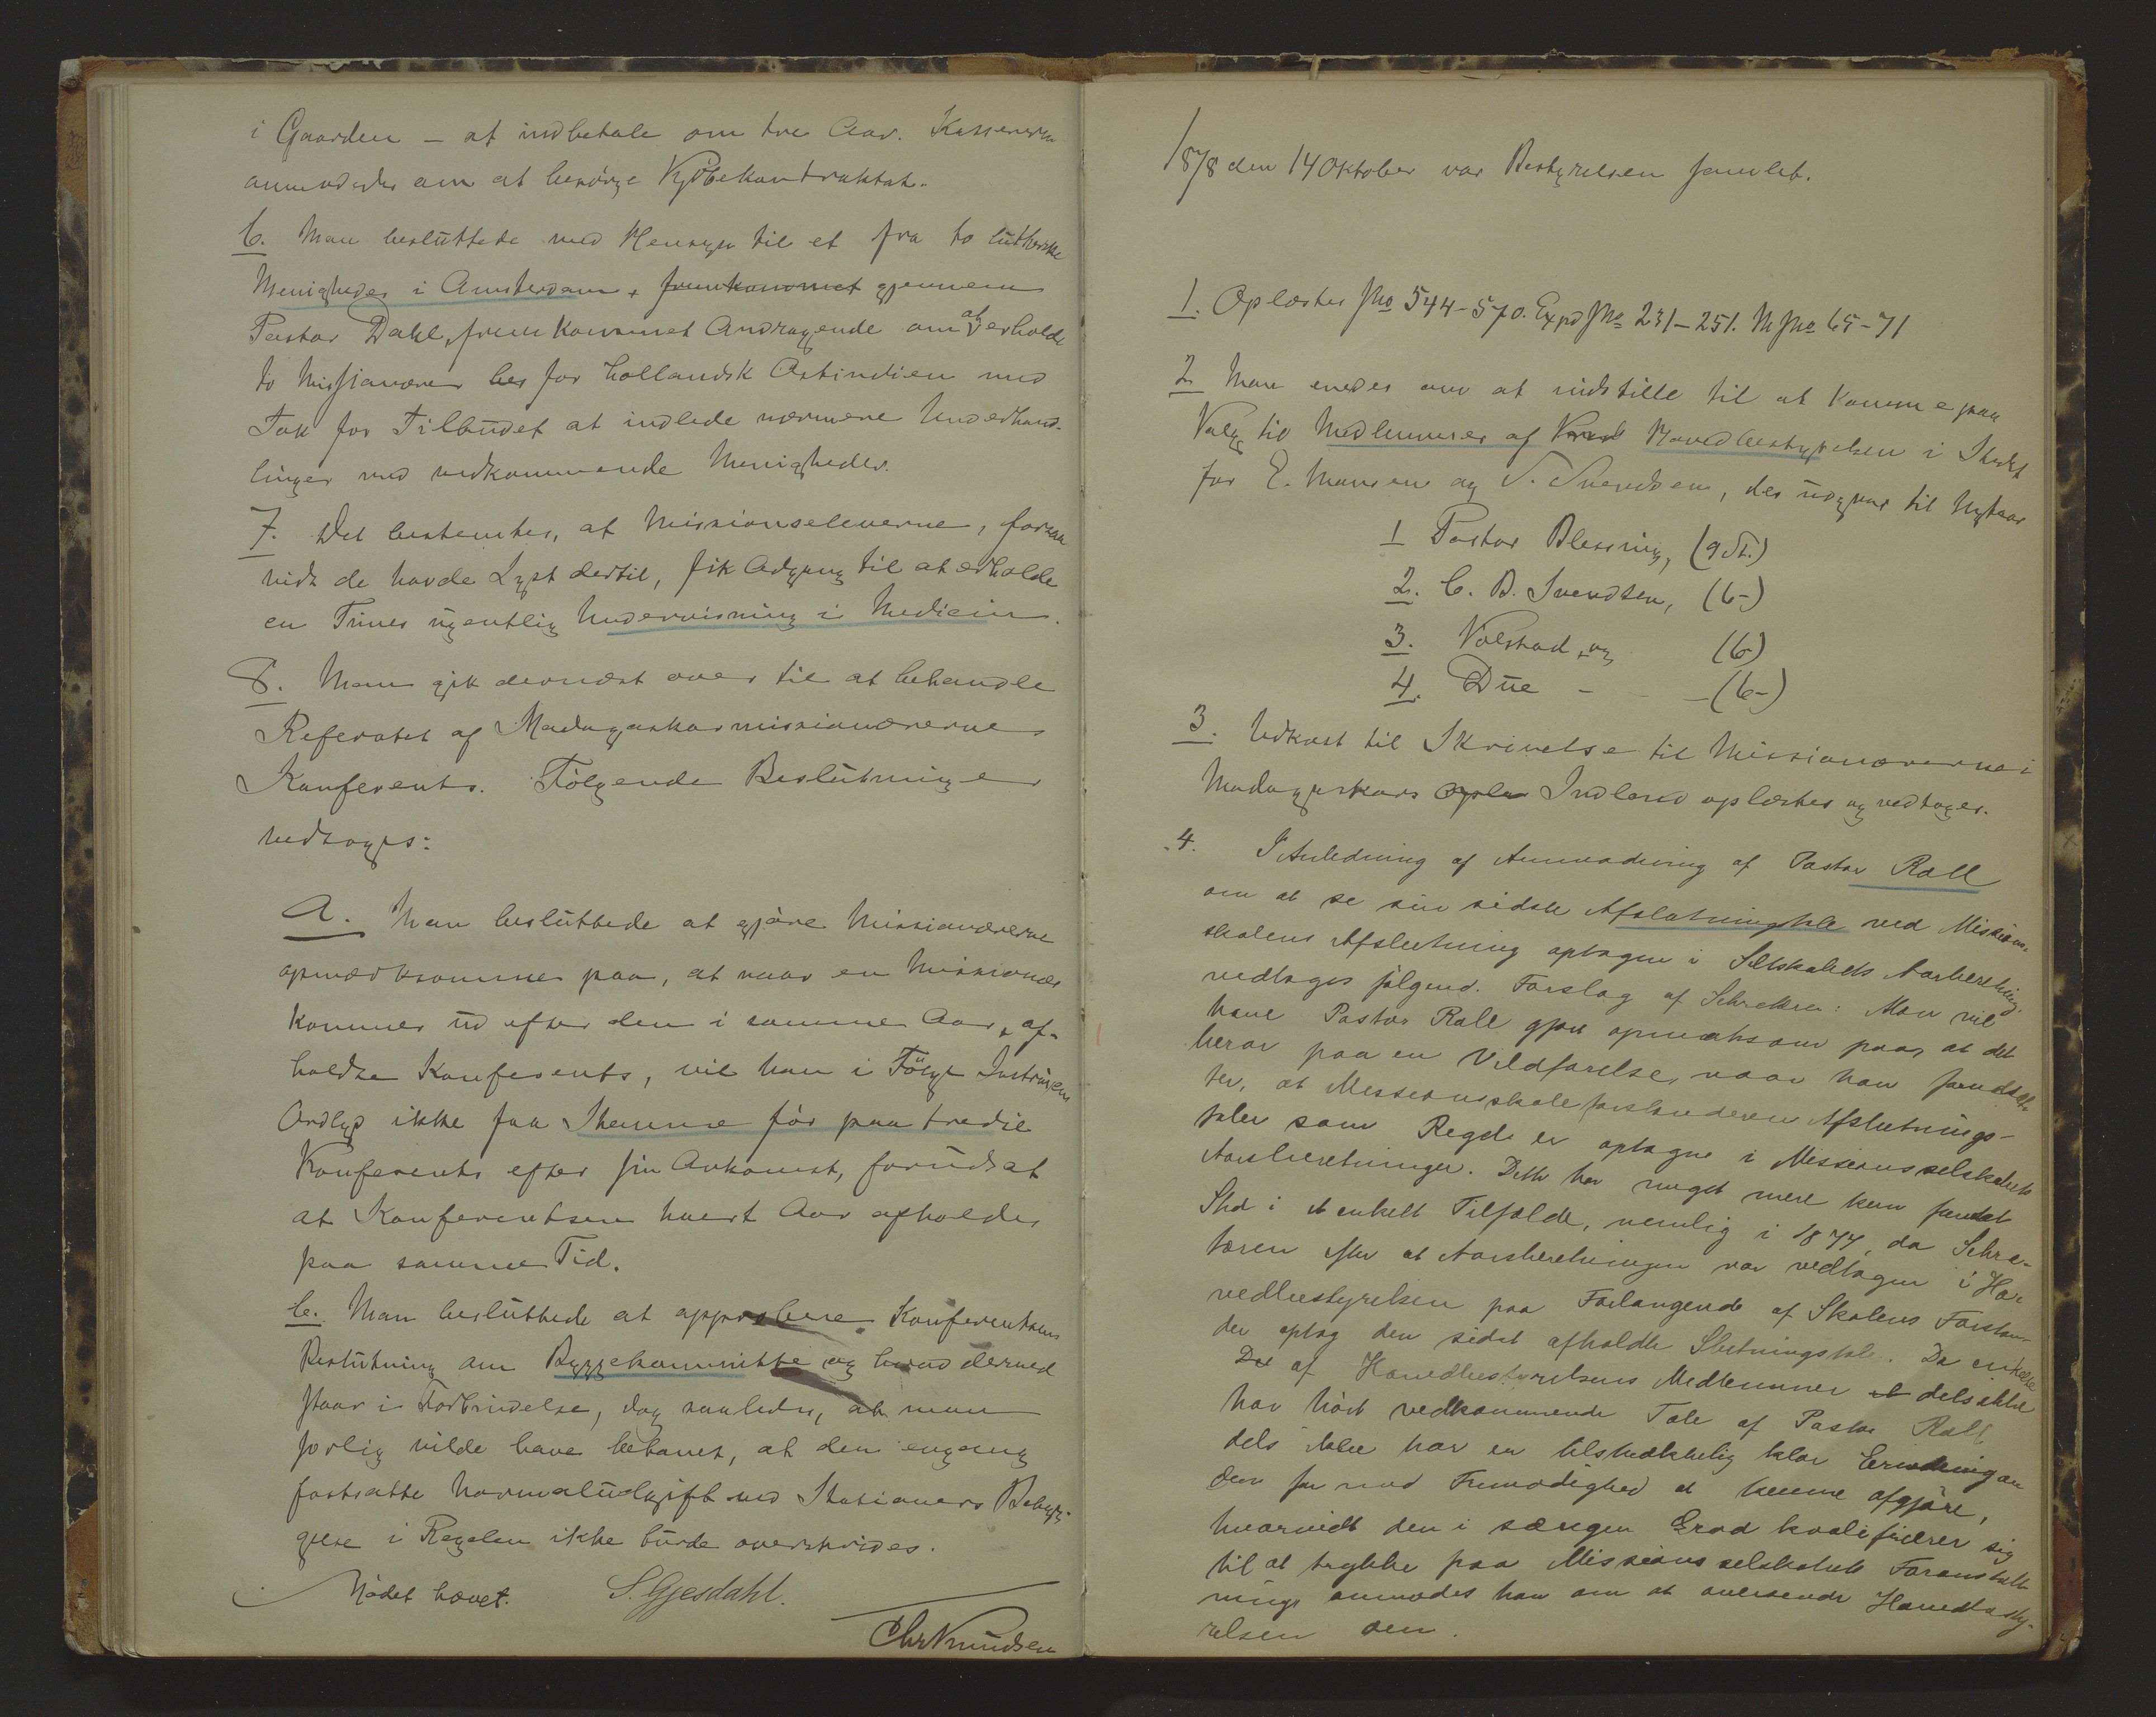 i Gaarden – at indbetale om tre Aar. Kassereren
anmodedes om at besörge Kjöbekontraktat.
6. Man besluttede med Hensyn til et fra to lutherske
Menigheder i Amsterdam, fremkommet gjennem
Pastor Dahl, fremkommet Andragende om at erholde
to Missionærer her for hollandsk Ostindien med
Tak for Tilbudet at indlede nærmere Underhand-
linger med vedkommende Menigheder.
7. Det bestemtes, at Missionseleverne, forsaa
vidt de havde Lyst dertil, fik Adgang til at erholde
en Times ugentlig Undervisning i Medicin.
8. Man gik dernæst over til at behandle
Referatet af Madagaskarmissionærernes
Konferents. Fölgende Beslutninger
vedtoges:
A. Man besluttede at gjöre Missionærerne
opmærksomme paa, at naar en Missionær
kommer ud efter den i samme Aar, af-
holdte Konferents, vil han i Fölge Instruxens
Ordlyd ikke faa Stemme för paa tredie
Konferents efter sin Ankomst, forudsat
at Konferentsen hvert Aar afholdes
paa samme Tid.
b. Man besluttede at approbere Konferentsens
Beslutning om Byggekommitte og hvad dermed
staar i Forbindelse, dog saaledes, at man
forlig vilde have betonet, at den engang
fastsatte Normaludgift ved Stationers Bebyg-
gelse i Regelen ikke burde overskrides.
Mödet hævet. S. Gjesdahl.
Chr Knudsen
1878 den 14 Oktober var Bestyrelsen samlet.
1. Oplæstes Jno 544-570. Expd Jno 231-251. M Jno 65-71
2 Man enedes om at indstille til at komme paa
Valg til Medlemmer af Hovedbestyrelsen i Stedet
for E. Monsen og S. Svendsen, der udgaar til Nytaar
1 Pastor Blessing, (9 St.)
2. C. B. Svendsen, (6-)
3. Volstad, og (6)
4. Due - - - (6-)
3. Udkast til Skrivelse til Missionærerne i
Madagaskars Oplæ Indland oplæstes og vedtoges.
4. I Anledning af Anmodning af Pastor Rall
om at se sin sidste Afslutningstale ved Missions-
skolens Afslutning optagen i Selskabets Aarsberetning,
vedtoges fölgend. Forslag af Sekretæren: Man vil
have Pastor Rall gjort opmærksom paa, at det
beror paa en Vildfarelse, naar han forudsæt-
ter, at Missionsskoleforstanderens Afslutnings-
taler som Regel er optagne i Missionsselskabets
Aarsberetninger. Dette har meget mere kun fundet
Sted i et enkelt Tilfælde, nemlig i 1877, da Sekre-
tæren efter at Aarsberetningen var vedtagen i Ho-
vedbestyrelsen paa Forlangende af Skolens Forstan-
der optog den sidst afholdte Slutningstale. Da enkelte
Del af Hovedbestyrelsens Medlemmer et dels ikke
har hört vedkommende Tale af Pastor Rall,
dels ikke har en tilstrækkelig klar Erindring om
den for med Frimodighed at kunne afgjöre,
hvorvidt den i særegen Grad kvalificerer sig
til at trykkes paa Missionsselskabets Foranstalt-
ning, anmodes han om at oversende Hovedbesty-
relsen den.